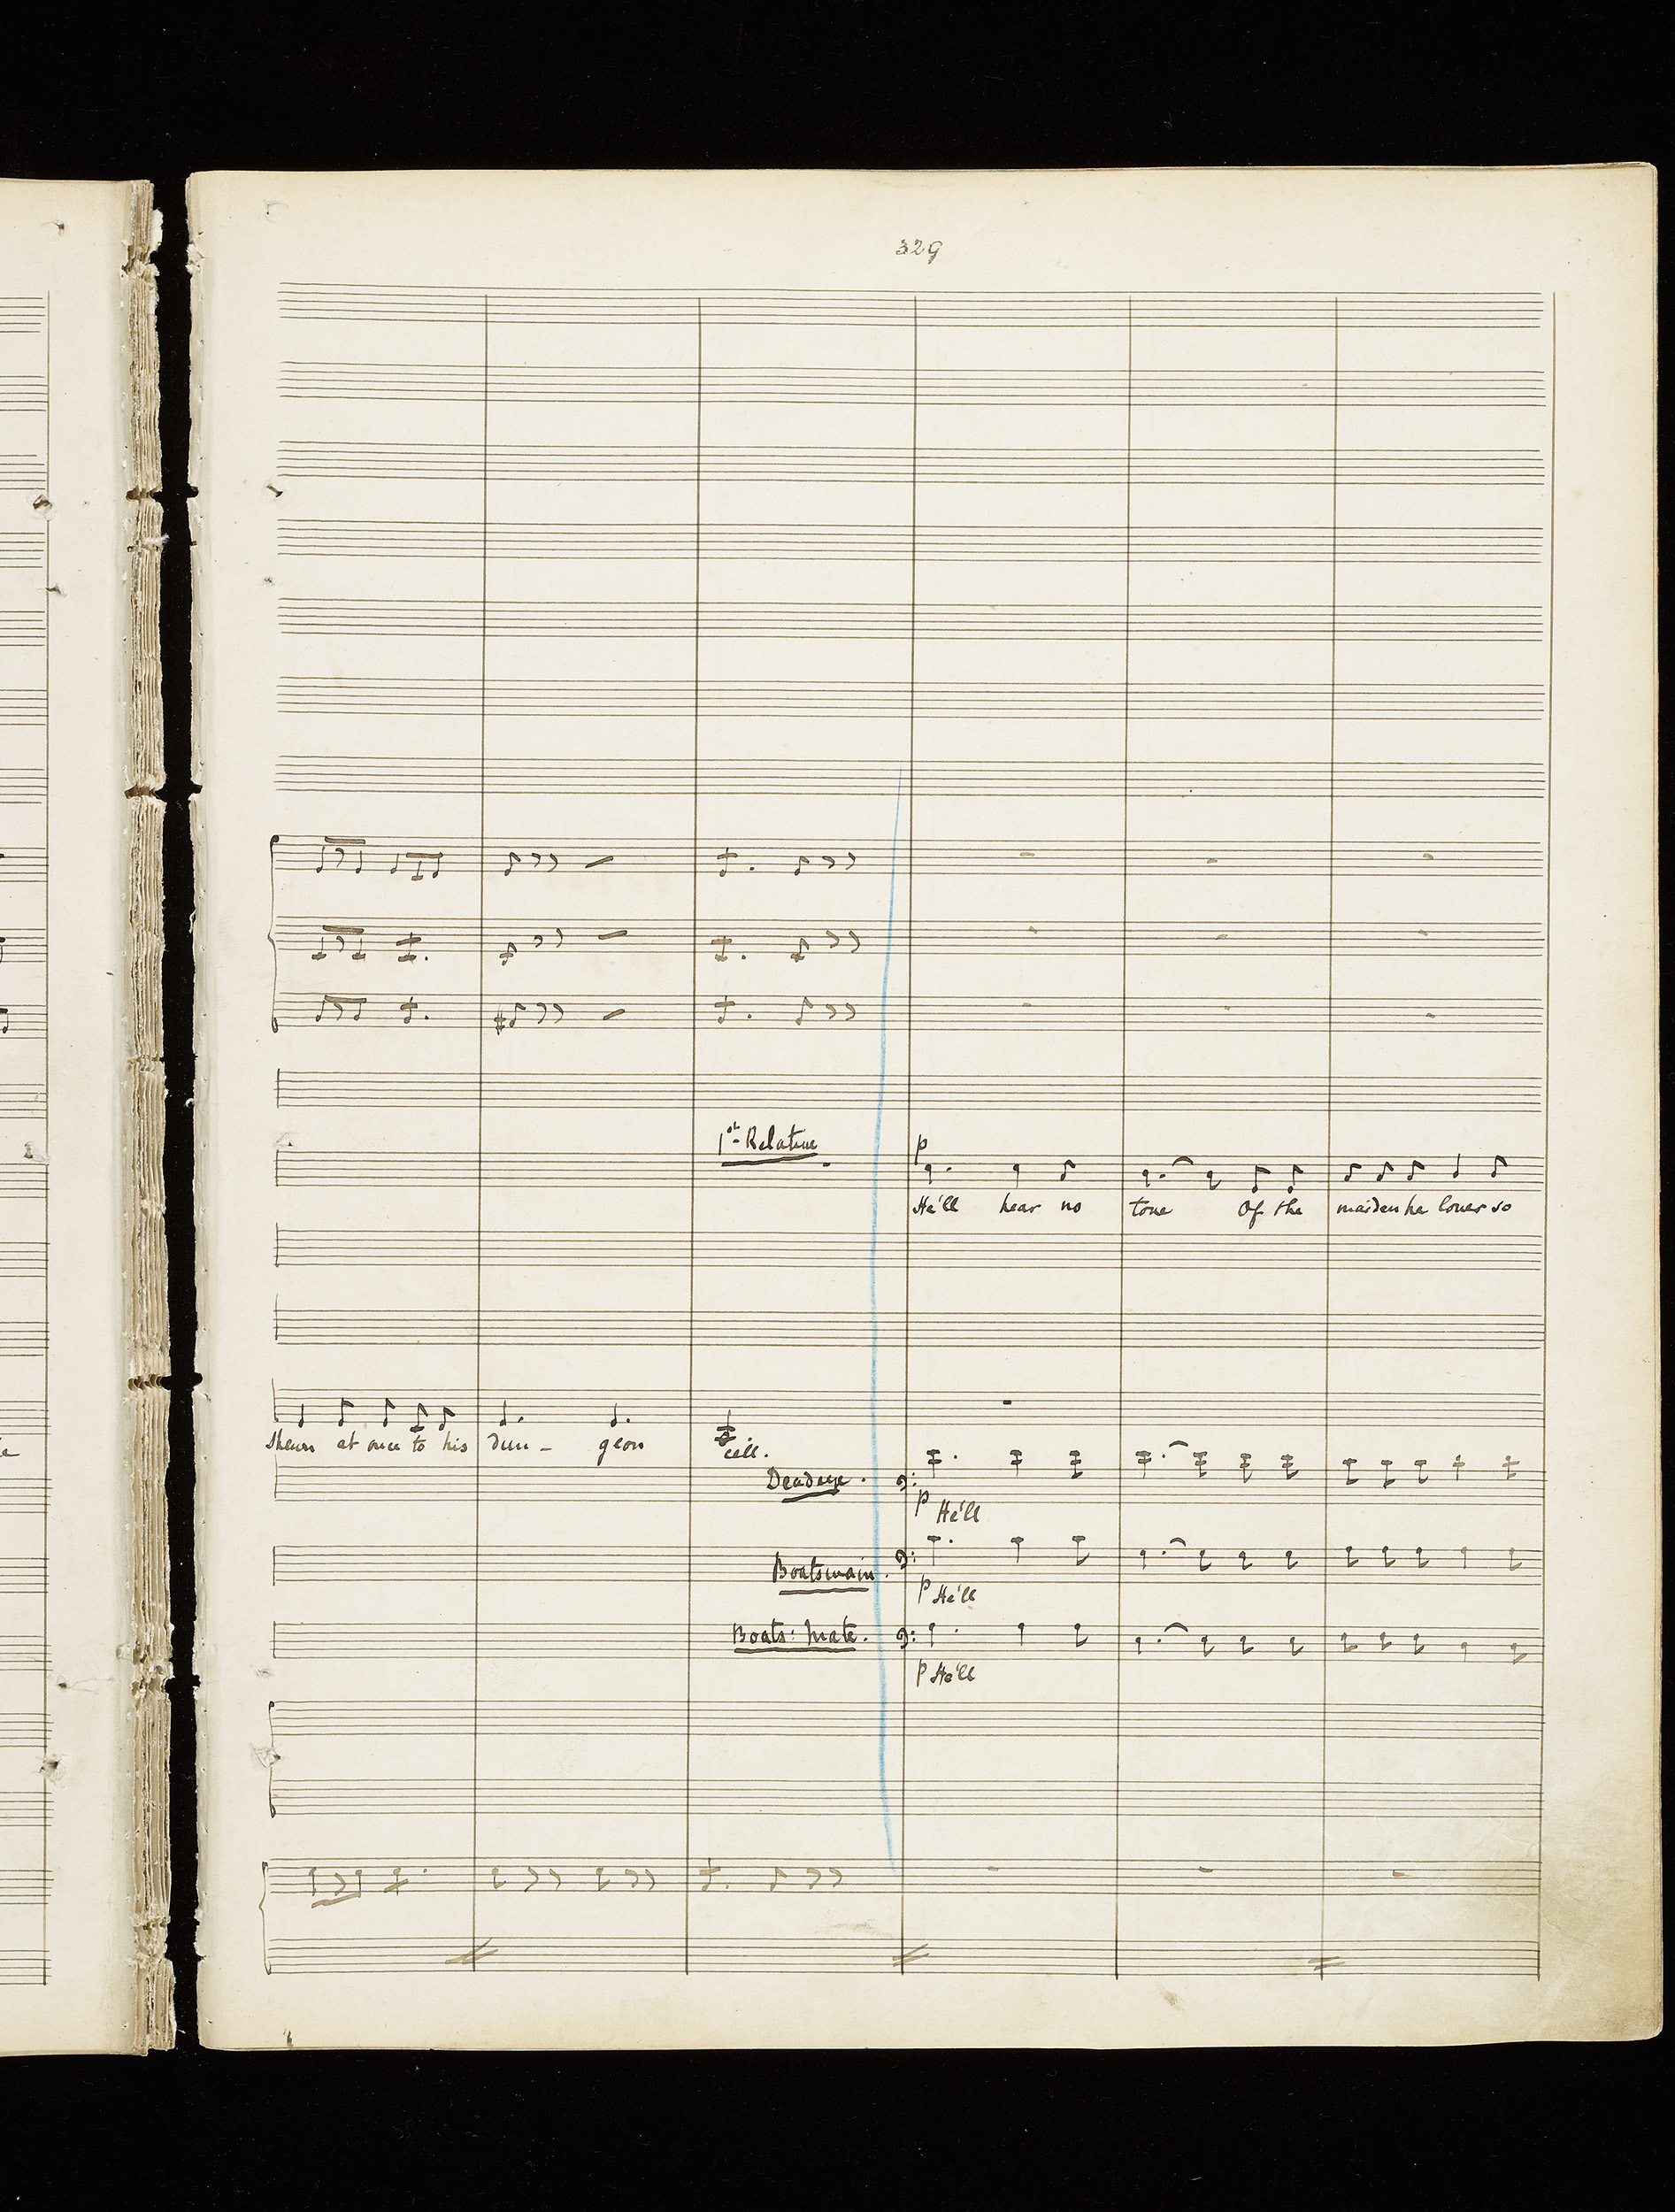 329
1st Relative
p
He'll hear no tone Of the maiden he loves so
shewn at once to his dun - geon cell.
Deadeye.
p He'll
Boatswain.
p He'll
Boats: Mate.
p He'll